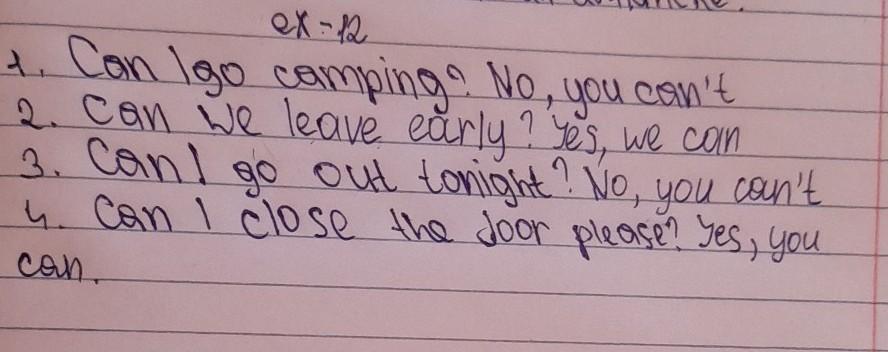 ex-12
1. Can I go camping? No, you can't
2. Can we leave early? Yes, we can
3. Can I go out tonight? No, you can't
4. Can I close the door please? Yes, you
can.